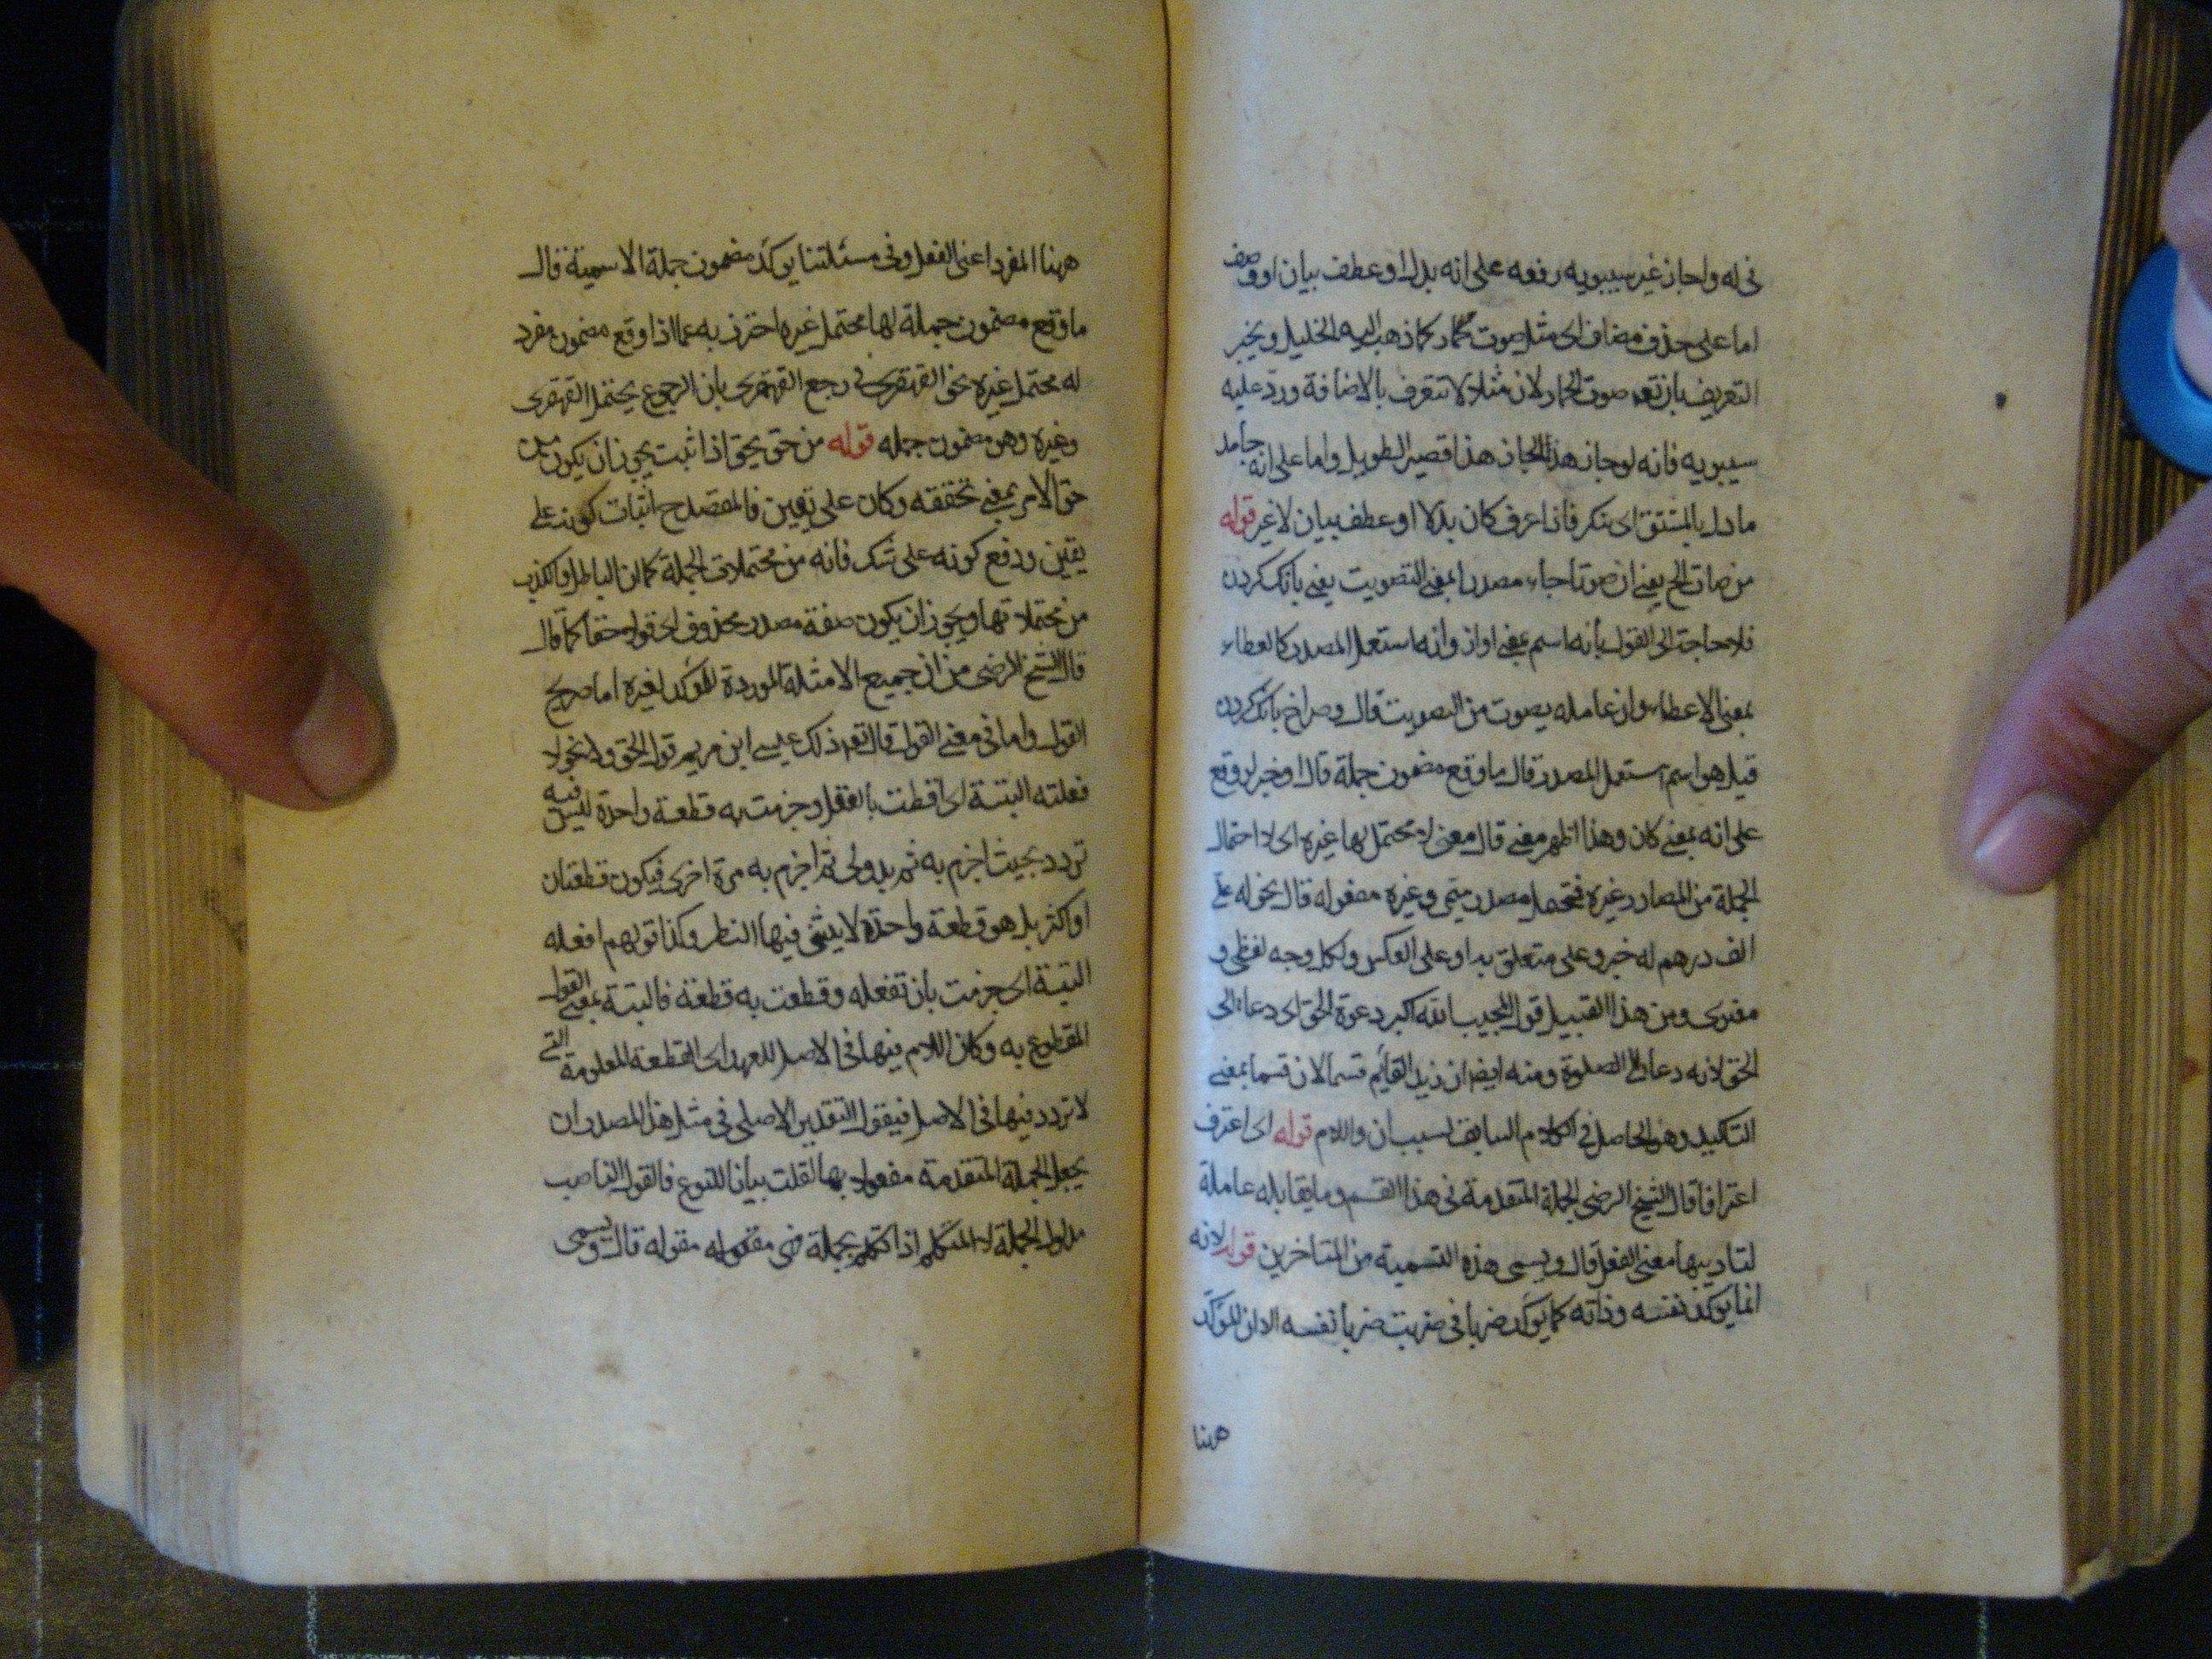 في له واجاز غير سيبويه رفعه على انه بدل او عطف بيان او وصف
اما على حذف مضاف اى مثل صوت حمار كما ذهب اليه الخليل ويخبر
التعريف بان تقد صوت الحمار لان مثلا لا تتعرف بالاضافة ورد عليه
سيبويه فانه لو جاز هذا لجاز هذا قصير الطويل واما على انه جامد
ماول بالمشتق اى منكر فاذا عرف كان بدلا او عطف بيان لا غير قوله
من صات الخ يعنى ان صوتا جاء مصدرا بمعنى التصويت يعنى بانك كردن
فلا حاجة الى القول بأنه اسم بمعنى اواز وانه استعمل المصدر كالعطاء
بمعنى الاعطاء وان عامله يصوت من التصويت قال وصراخ بانك كردن
قيل هو اسم استعمل المصدر قال ما وقع مضمون جملة قال او خبر لوقع
على انه بمعنى كان وهذا اظهر معنى قال معنى لا محتمل لها غيره اى لا احتمال
الجملة من المصادر غيره فمحتمل مصدر ميمى وغيره مفعوله قال نحو له على
الف درهم له خبر وعلى متعلق به او على العكس ولكل وجه لفظى و
معنوى ومن هذا القبيل قول المجيب الله اكبر دعوة الحق اى دعاء الى
الحق لانه دعاء الى الصلوة ومنه ايضا ان زيدا لقائم قسما لان قسما بمعنى
التاكيد وهو الحاصل فى الكلام السابق بسبب ان واللام قوله اى اعترف
اعترافا قال الشيخ الرضى الجملة المتقدمة فى هذا القسم وما يقابله عاملة
لتاديبها معنى الفعل قال ويسمى هذه التسمية من المتاخرين قوله لانه
انما يوكد نفسه وذاته كما يوكد ضربا فى ضربت ضربا نفسه الا ان الموكد
ههنا
ههنا المفرد اعنى الفعل وفى مسئلتنا يوكد مضمون جملة الاسمية قال
ما وقع مضمون جملة لها محتمل غيره احترز به عما اذا وقع مضمون مفرد
له محتمل غيره نحو القهقرى فى رجع القهقرى بان الرجوع يحتمل القهقرى
وغيره وهو مضمون جمله قوله من حق يحق اذا ثبت يجوز ان يكون من
حق الامر بمعنى تحققه وكان على يقين فالمقصد ح اثبات كونه على
يقين ودفع كونه على شك فانه من محتملات الجملة كما ان الباطل والكذب
من محتملاتها ويجوز ان يكون صفة مصدر محذوف اى قولا حقا كما قال
قال الشيخ الرضى من ان جميع الامثلة الموردة للموكد لغيره اما صريح
القول واما فى معنى القول قال تعه ذلك عيسى ابن مريم قول الحق ولا نحو لا
فعلته البتة اى قطعت بالفعل وجزمت به قطعة واحدة ليس فيه
تردد بحيث اجزم به ثم يبدو لى ثم اجزم به مرة اخرى فيكون قطعتان
او اكثر بل هو قطعة واحدة لا يثنى فيها النظر وكذا قولهم افعله
البتة اى جزمت بان تفعله وقطعت به قطعة فالبتة بمعنى القول
المقطوع به وكان اللام فيها فى الاصل للعهد اى القطعة المعلومة التى
لا تردد فيها فى الاصل فيقول التقدير الاصلى فى مثل هذا المصدر ان
يجعل الجملة المتقدمة مفعولا بها لقلت بيانا للنوع فالقول الناصب
مدلول الجملة لان المتكلم اذا تكلم بجملة فهى مقوله مقوله قال ويسمى